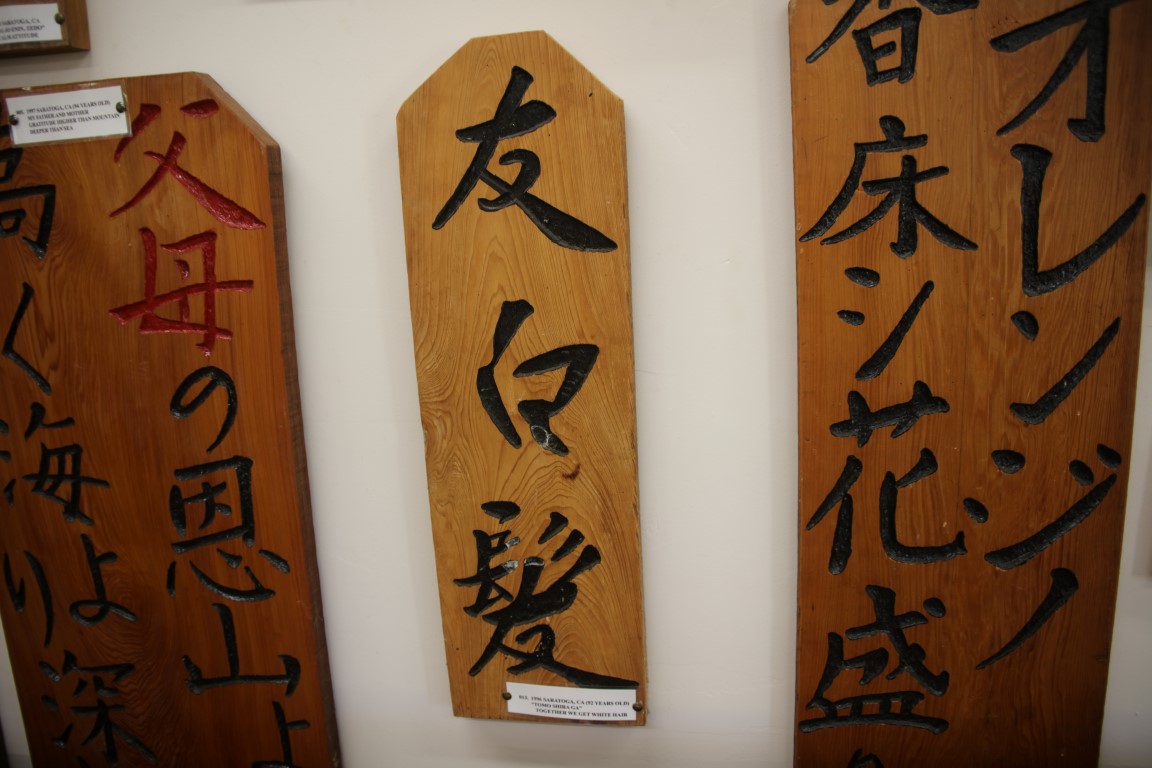 SARATOGA, CA
005. 1997 SARATOGA, CA (94 YEARS OLD)
MY FATHER AND MOTHER
GRATITUDE HIGHER THAN MOUNTAIN
DEEPER THAN SEA
父母の恩山よ
高く海より深
友白髪
1996 SARATOGA, CA (92 YEARS OLD)
"TOMO SHIRA GA"
TOGETHER WE GET WHITE HAIR
オレンジノ
香床シ花盛